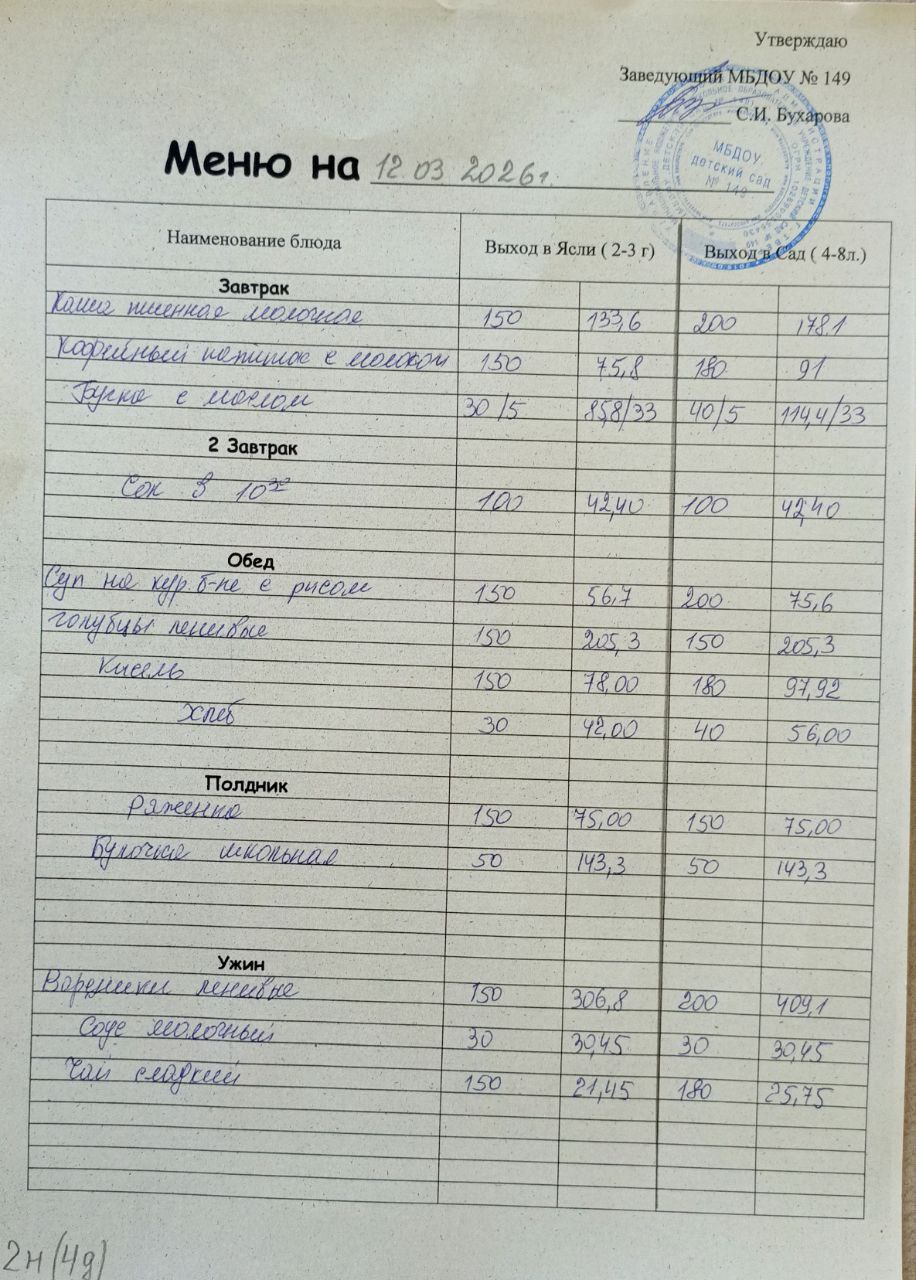 Утверждаю
Заведующий МБДОУ № 149
С.И. Бухарова
МБДОУ
детский сад
№ 149
Меню на 12.03 2026г.
Наименование блюда Выход в Ясли ( 2-3 г) Выход в Сад ( 4-8л.)
Завтрак
Каша пшенная молочная 150 133,6 200 178,1
Кофейный напиток с молоком 150 75,8 180 91
Булка с маслом 30/5 85,8/33 40/5 114,4/33
2 Завтрак
Сок в 10³⁰ 100 42,40 100 42,40
Обед
Суп на кур. б-не с рисом 150 56,7 200 75,6
Голубцы ленивые 150 205,3 150 205,3
Кисель 150 78,00 180 97,92
Хлеб 30 42,00 40 56,00
Полдник
Ряженка 150 75,00 150 75,00
Булочка школьная 50 143,3 50 143,3
Ужин
Вареники ленивые 150 306,8 200 409,1
Соус молочный 30 30,45 30 30,45
Чай сладкий 150 21,45 180 25,75
2н(4д)